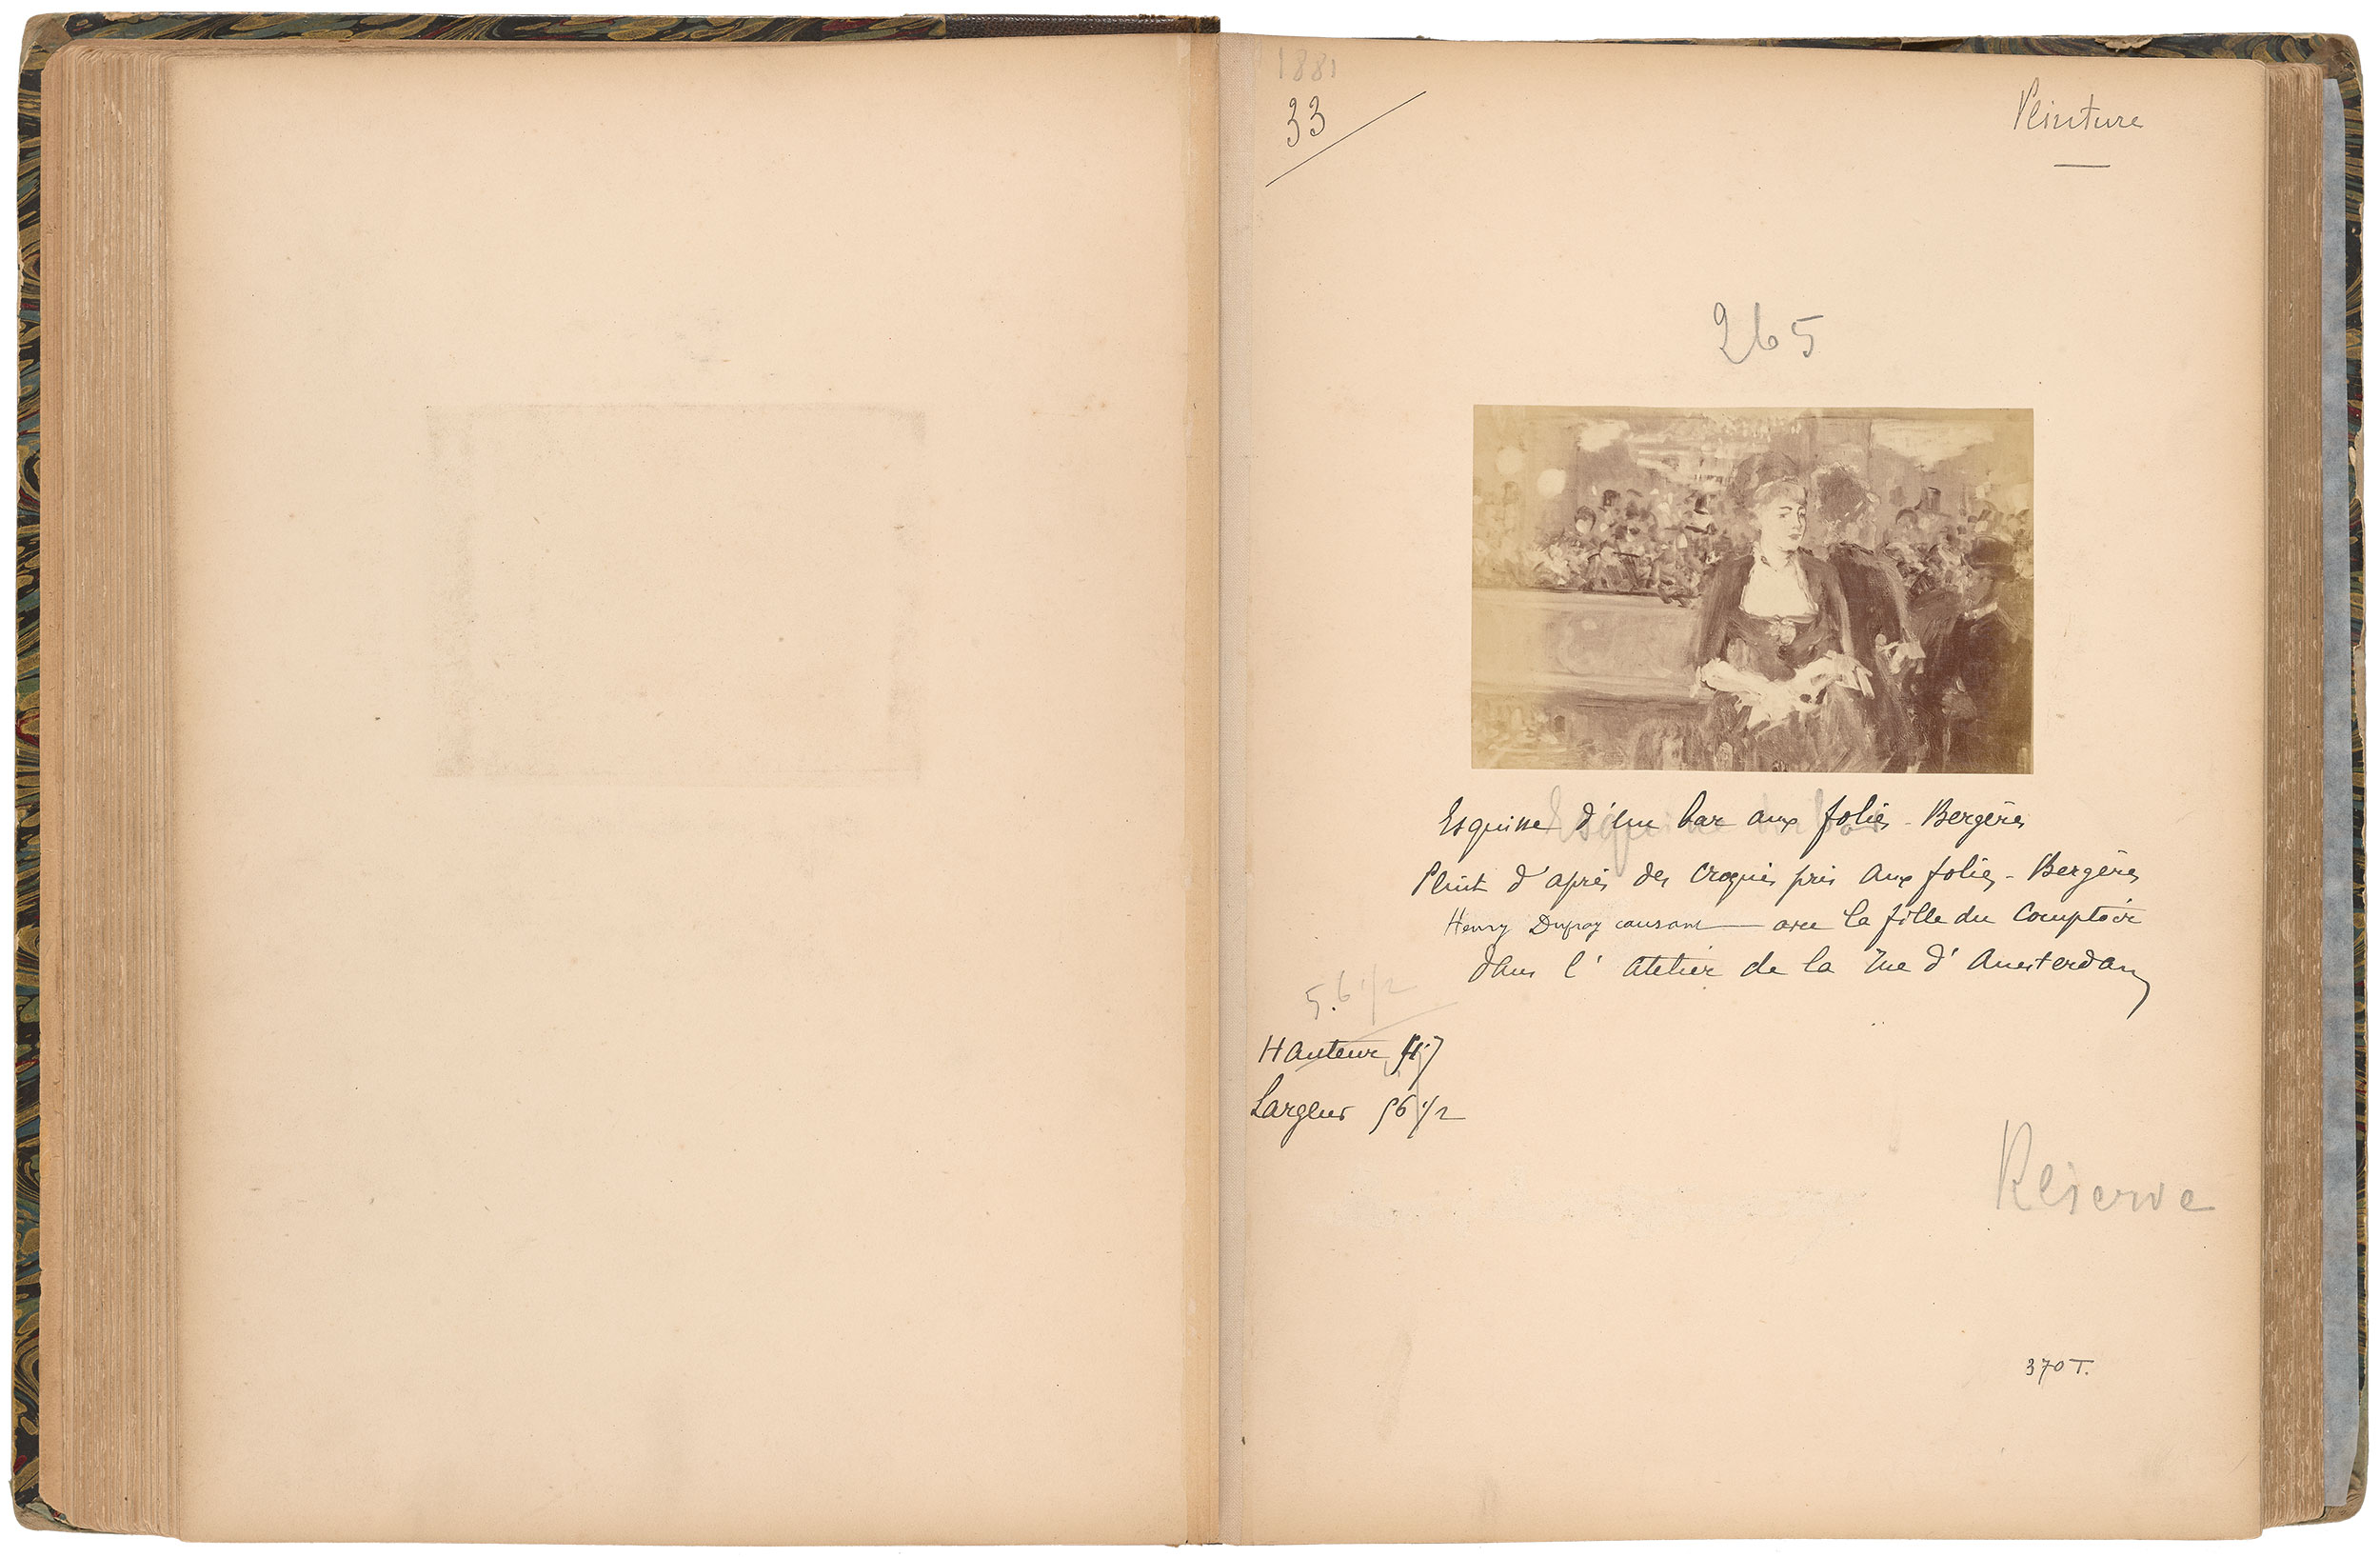 1881
33
Peinture
265
Esquisse d'un bar aux folies-Bergères
Peint d'après des croquis pris aux folies-Bergères
Henry Dupray causant avec la fille du Comptoir
dans l'atelier de la rue d'Amsterdam
5.6 1/2
Hauteur 47
Largeur 56 1/2
Réserve
370 T.